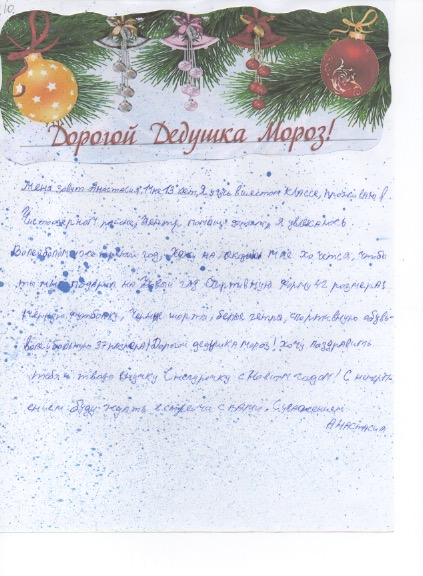 10
Дорогой Дедушка Мороз!
Меня зовут Анастасия. Мне 13 лет, Я учусь в шестом классе, проживаю в
Чистоозерном районе, Центр помощи Я увлекаюсь
Волейболом уже год, на мне хочется, чтобы
ты мне подарил на Новый год Спортивную форму 42 размера:
чёрную футболку, чёрные шорты, белые гетры, спортивную обувь-
волейбольную 37 размера) Дорогой дедушка мороз! Хочу поздравить
тебя и твою внучку Снегурочку с Новым годом! С нетерп-
ением буду ждать встречи с вами. С уважением
Анастасия